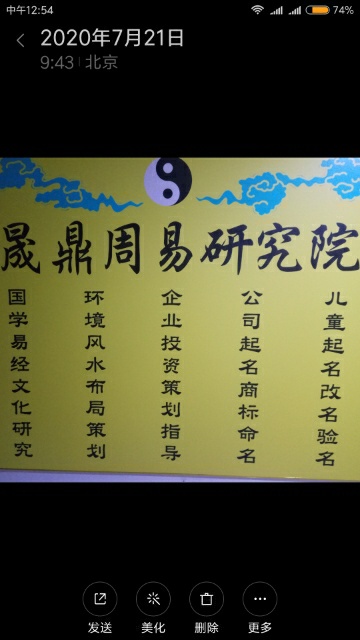 中午12:54
74%
2020年7月21日
9:43 | 北京
晟鼎周易研究院
国学易经文化研究
环境风水布局策划
企业投资策划指导
公司起名商标命名
儿童起名改名验名
发送
美化
删除
更多